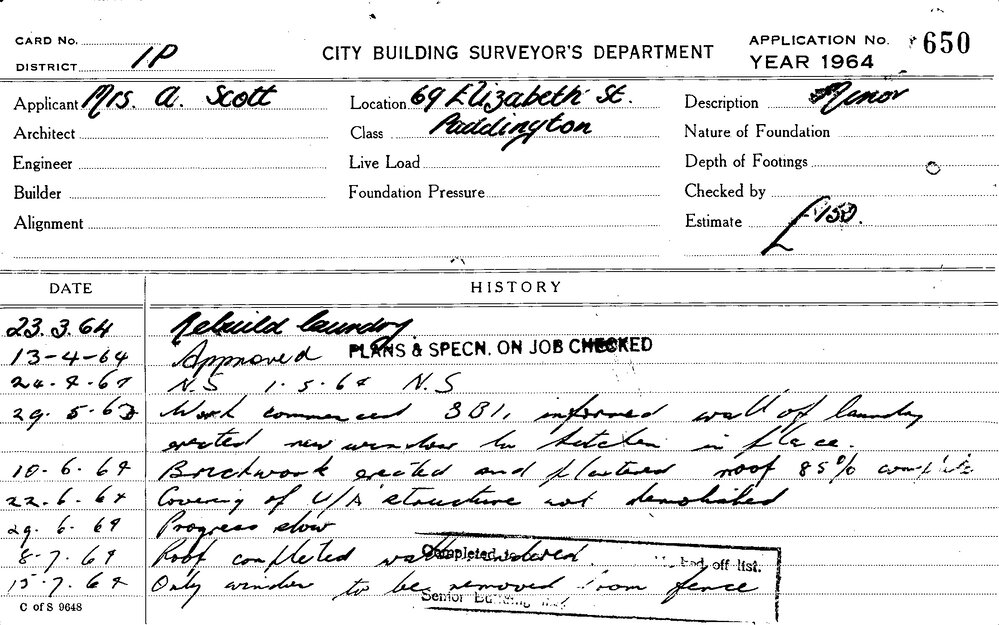 CARD No.
DISTRICT 1P
CITY BUILDING SURVEYOR'S DEPARTMENT
APPLICATION No. 650
YEAR 1964
Applicant Mrs. A. Scott
Architect
Engineer
Builder
Alignment
Location 69 Elizabeth St.
Paddington
Class
Live Load
Foundation Pressure
Description Minor
Nature of Foundation
Depth of Footings
Checked by
Estimate £150.
DATE HISTORY
23.3.64 Rebuild laundry
13-4-64 Approved PLANS & SPECN. ON JOB CHECKED
24.4.64 N.S 1.5.64 N.S
29.5.64 Work commenced informed wall of laundry
erected new window in kitchen in place.
10.6.64 Brickwork erected and plastered roof 85% complete
22.6.64 Covering of U/A structure not demolished
29.6.64 Progress slow
8.7.64 Roof completed walls rendered.
15.7.64 Only window to be removed from fence
Completed off list.
Senior Building
C of S 9648